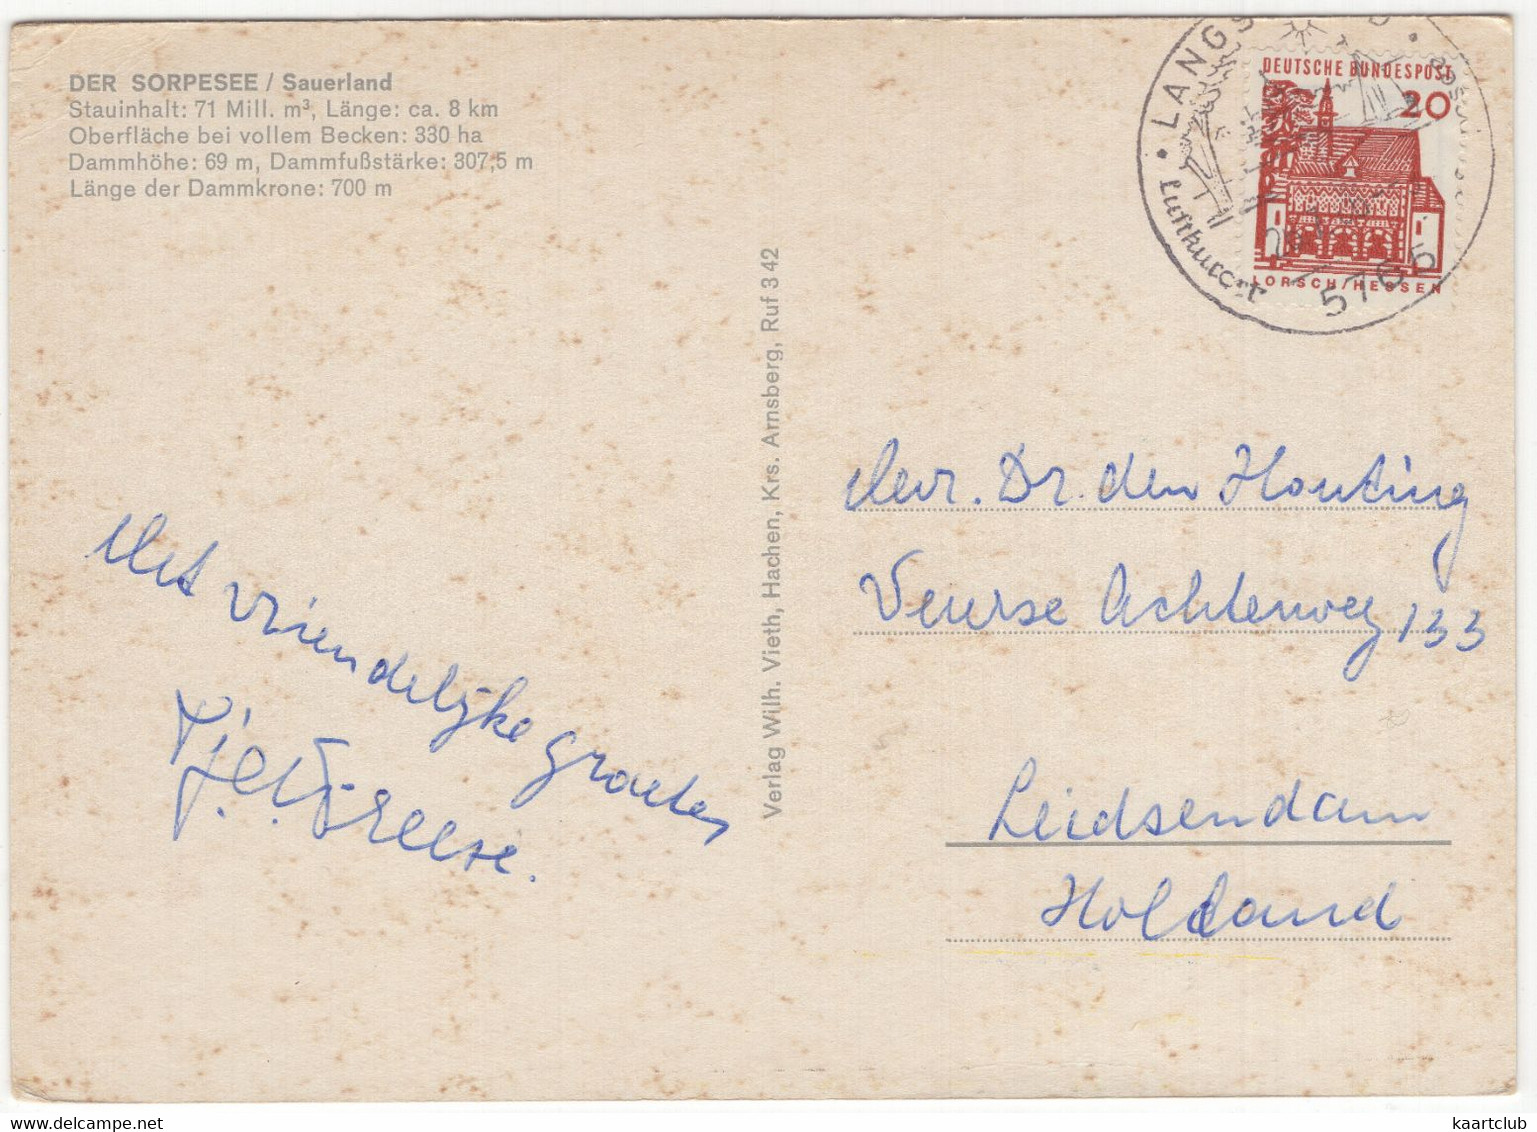 DER SORPESEE / Sauerland
Stauinhalt: 71 Mill. m³, Länge: ca. 8 km
Oberfläche bei vollem Becken: 330 ha
Dammhöhe: 69 m, Dammfußstärke: 307,5 m
Länge der Dammkrone: 700 m
Met vriendelijke groeten
Verlag Wilh. Vieth, Hachen, Krs. Arnsberg, Ruf 342
DEUTSCHE BUNDESPOST
20
LORSCH/HESSEN
Luftkurort
5765
Mevr. Dr. den Houting
Veurse Achterweg 133
Leidsendam
Holland
kaartclub